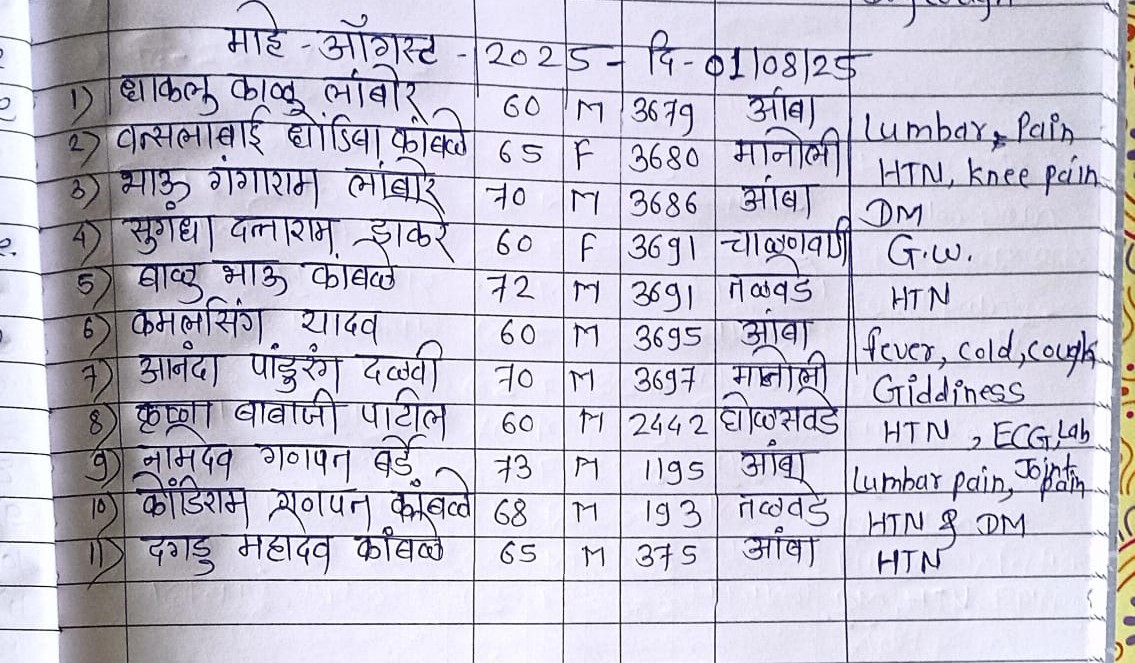 माहे - ऑगस्ट - 2025 - दि - 01/08/25
1) धाकलु काळु लांबोरे 60 M 3679 आंबा lumbar, Pain
2) वत्सलाबाई धोंडिबा कांबळे 65 F 3680 मानोली HTN, knee pain
3) भाऊ गंगाराम लांबोरे 70 M 3686 आंबा DM
4) सुगंधा दत्ताराम झाकरे 60 F 3691 चाळणवाडी G.W.
5) बाळु भाऊ कांबळे 72 M 3691 तळवडे HTN
6) कमलसिंग यादव 60 M 3695 आंबा fever, cold, cough
7) आनंदा पांडुरंग दळवी 70 M 3697 मानोली Giddiness
8) कृष्णा बाबाजी पाटील 60 M 2442 घोळसवडे HTN, ECG, Lab
9) नामदेव गणपत बर्डे 73 M 1195 आंबा lumbar pain, Joint pain
10) कोंडिराम गणपत कांबळे 68 M 193 तळवडे HTN & DM
11) दगडु महादेव कांबळे 65 M 375 आंबा HTN